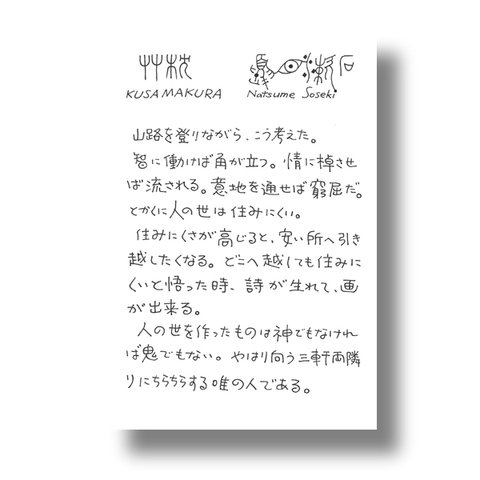 艸枕
KUSAMAKURA
漱石
Natsume Soseki
山路を登りながら、こう考えた。
智に働けば角が立つ。情に棹させ
ば流される。意地を通せば窮屈だ。
とかくに人の世は住みにくい。
住みにくさが高じると、安い所へ引き
越したくなる。どこへ越しても住みに
くいと悟った時、詩が生れて、画
が出来る。
人の世を作ったものは神でもなけれ
ば鬼でもない。やはり向う三軒両隣
りにちらちらする唯の人である。